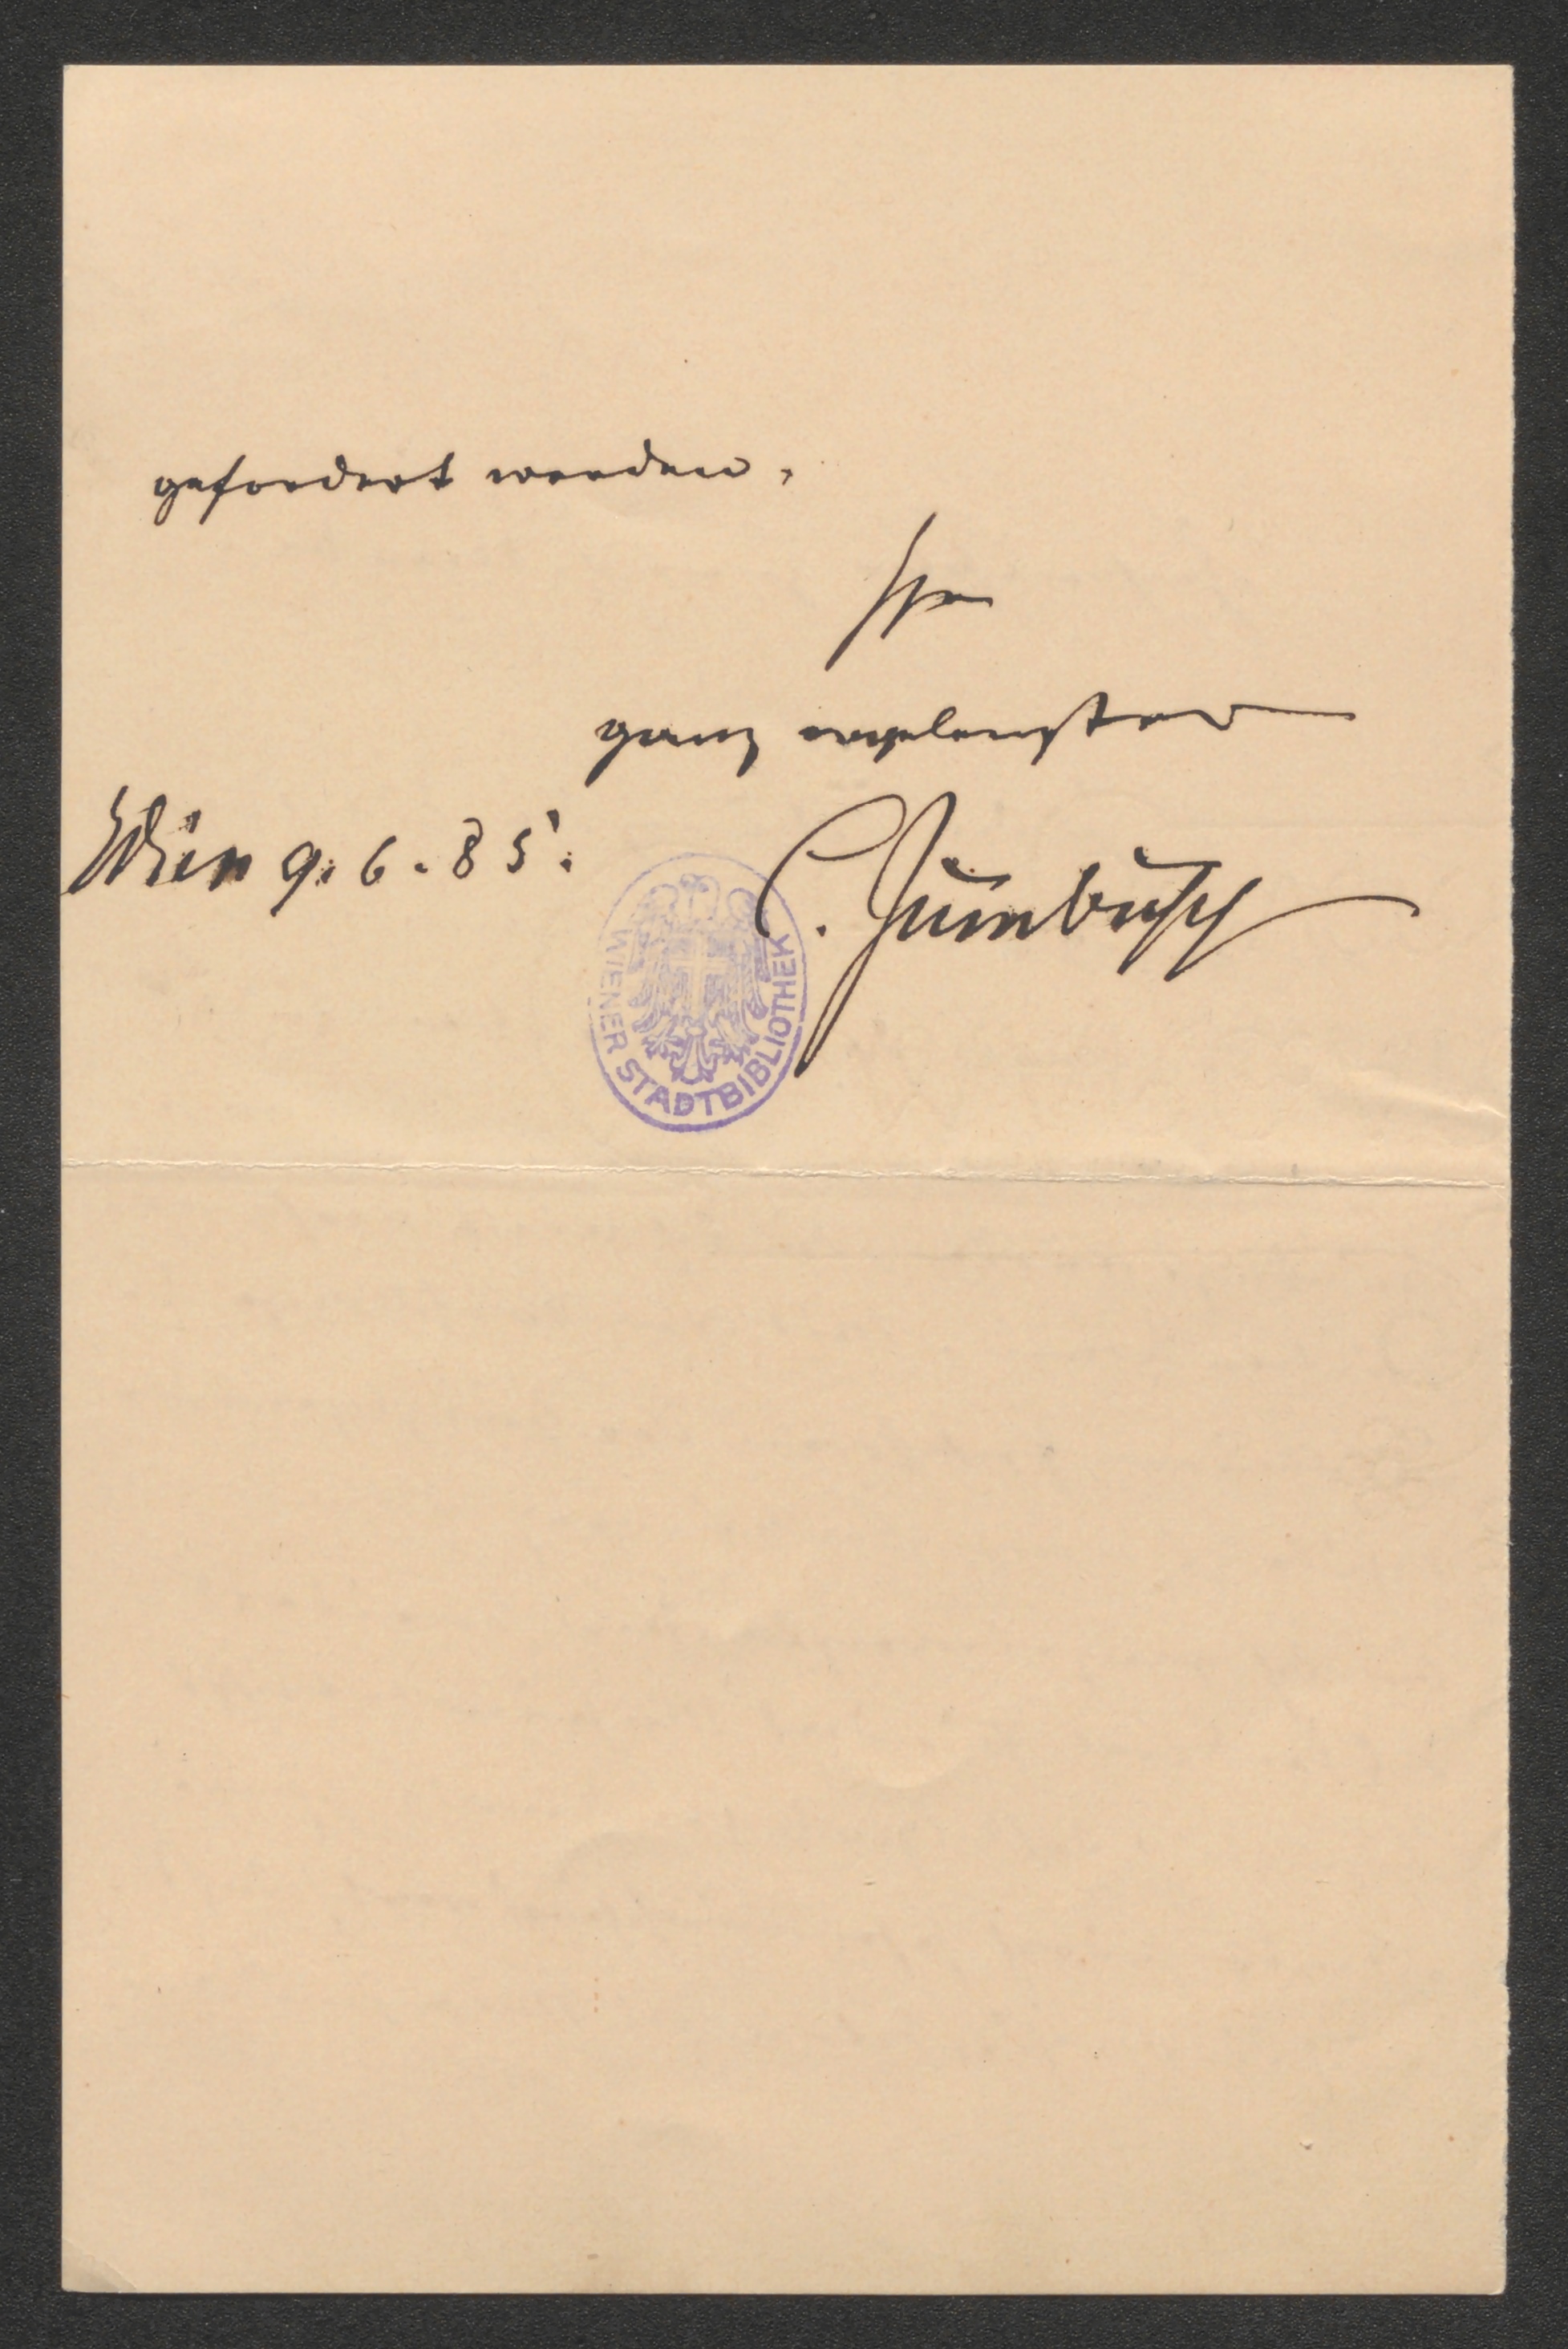 gefordert werden.
Ihr
ganz ergebenster
Wien 9. 6. 85.
C. Zumbusch
WIENER STADTBIBLIOTHEK